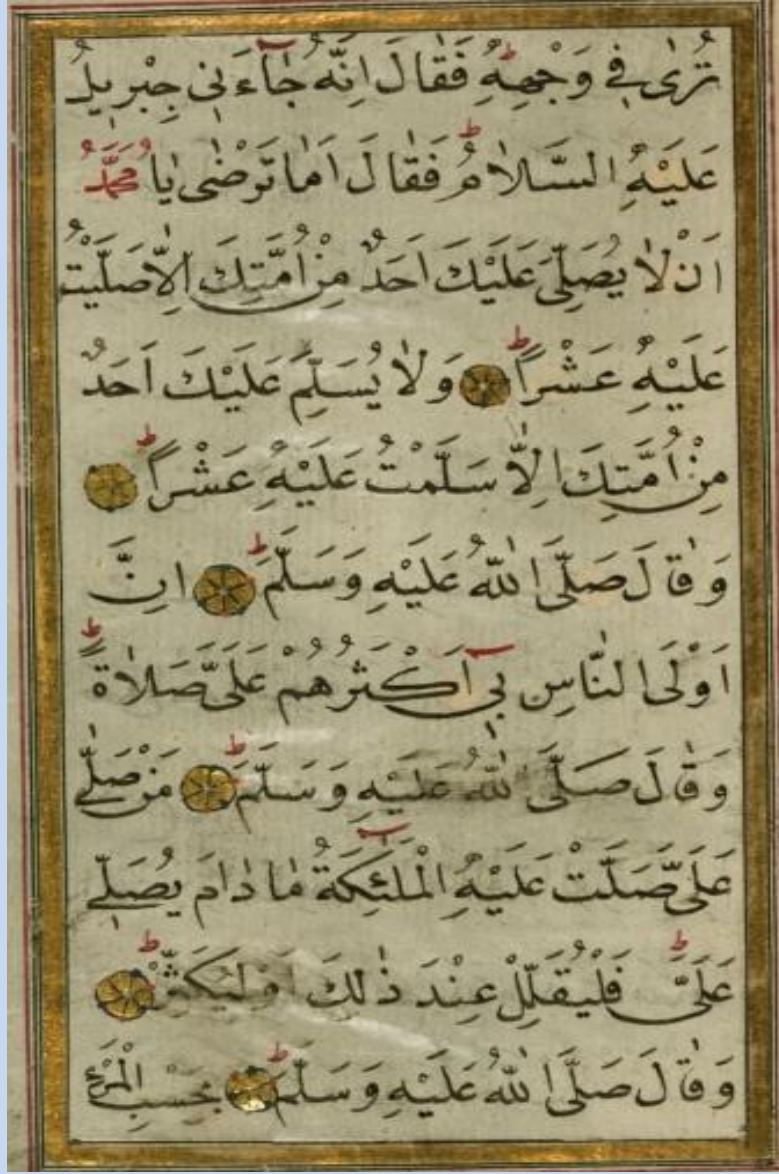 تُرٰى فِي وَجْهِهِ فَقَالَ اِنَّهُ جَٓاءَنِي جِبْرِيلُ
عَلَيْهِ السَّلَامُ فَقَالَ اَمَا تَرْضٰى يَا مُحَمَّدُ
اَنْ لَا يُصَلِّيَ عَلَيْكَ اَحَدٌ مِنْ اُمَّتِكَ اِلَّا صَلَّيْتُ
عَلَيْهِ عَشْرًا وَلَا يُسَلِّمَ عَلَيْكَ اَحَدٌ
مِنْ اُمَّتِكَ اِلَّا سَلَّمْتُ عَلَيْهِ عَشْرًا
وَقَالَ صَلَّى اللّٰهُ عَلَيْهِ وَسَلَّمَ اِنَّ
اَوْلَى النَّاسِ بِٓي اَكْثَرُهُمْ عَلَيَّ صَلَاةً
وَقَالَ صَلَّى اللّٰهُ عَلَيْهِ وَسَلَّمَ مَنْ صَلّٰى
عَلَيَّ صَلَّتْ عَلَيْهِ الْمَلٰٓئِكَةُ مَا دَامَ يُصَلِّي
عَلَيَّ فَلْيُقَلِّلْ عِنْدَ ذٰلِكَ اَوْ لْيُكَثِّرْ
وَقَالَ صَلَّى اللّٰهُ عَلَيْهِ وَسَلَّمَ بِحَسْبِ الْمَرْءِ